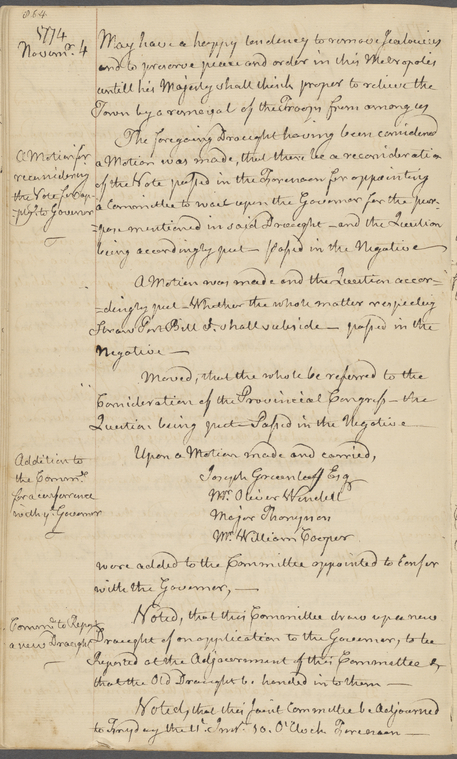 364
1774
Novemr. 4
May have a happy tendency to remove Jealousies
and to preserve peace and order in this Metropolis
untill his Majesty shall think proper to relieve the
Town by a removal of the Troops from among us
The foregoing Draught having been considered
A Motion for
reconsidering
the Vote for ap-
plyg. to Governor
a Motion was made, that there be a reconsideration
of the Vote passed in the Forenoon for appointing
a Committee to wait upon the Governor for the pur-
=pose mentioned in said Draught — and the Question
being accordingly put — passed in the Negative
A Motion was made and the Question accor-
=dingly put — Whether the whole matter respecting
Straw Port Bill &. shall subside — passed in the
Negative —
Moved, that the whole be referred to the
Consideration of the Provincial Congress — the
Question being put — Passed in the Negative
Addition to
the Comme.
for a conferrence
with ye. Governor
Upon a Motion made and carried,
Joseph Greenleaff Esq
Mr. Oliver Wendell
Major Thompson
Mr. William Cooper
were added to the Committee appointed to Confer
with the Governor, —
Comme. to Report
a new Draught
Voted, that this Committee draw up a new
Draught of an application to the Governor, to be
Reported at the Adjournment of this Committee &
that the Old Draught be handed in to them —
Voted, that this Joint Committee be Adjourned
to Fryday the 11th. Inst. 10. O'Clock Forenoon —